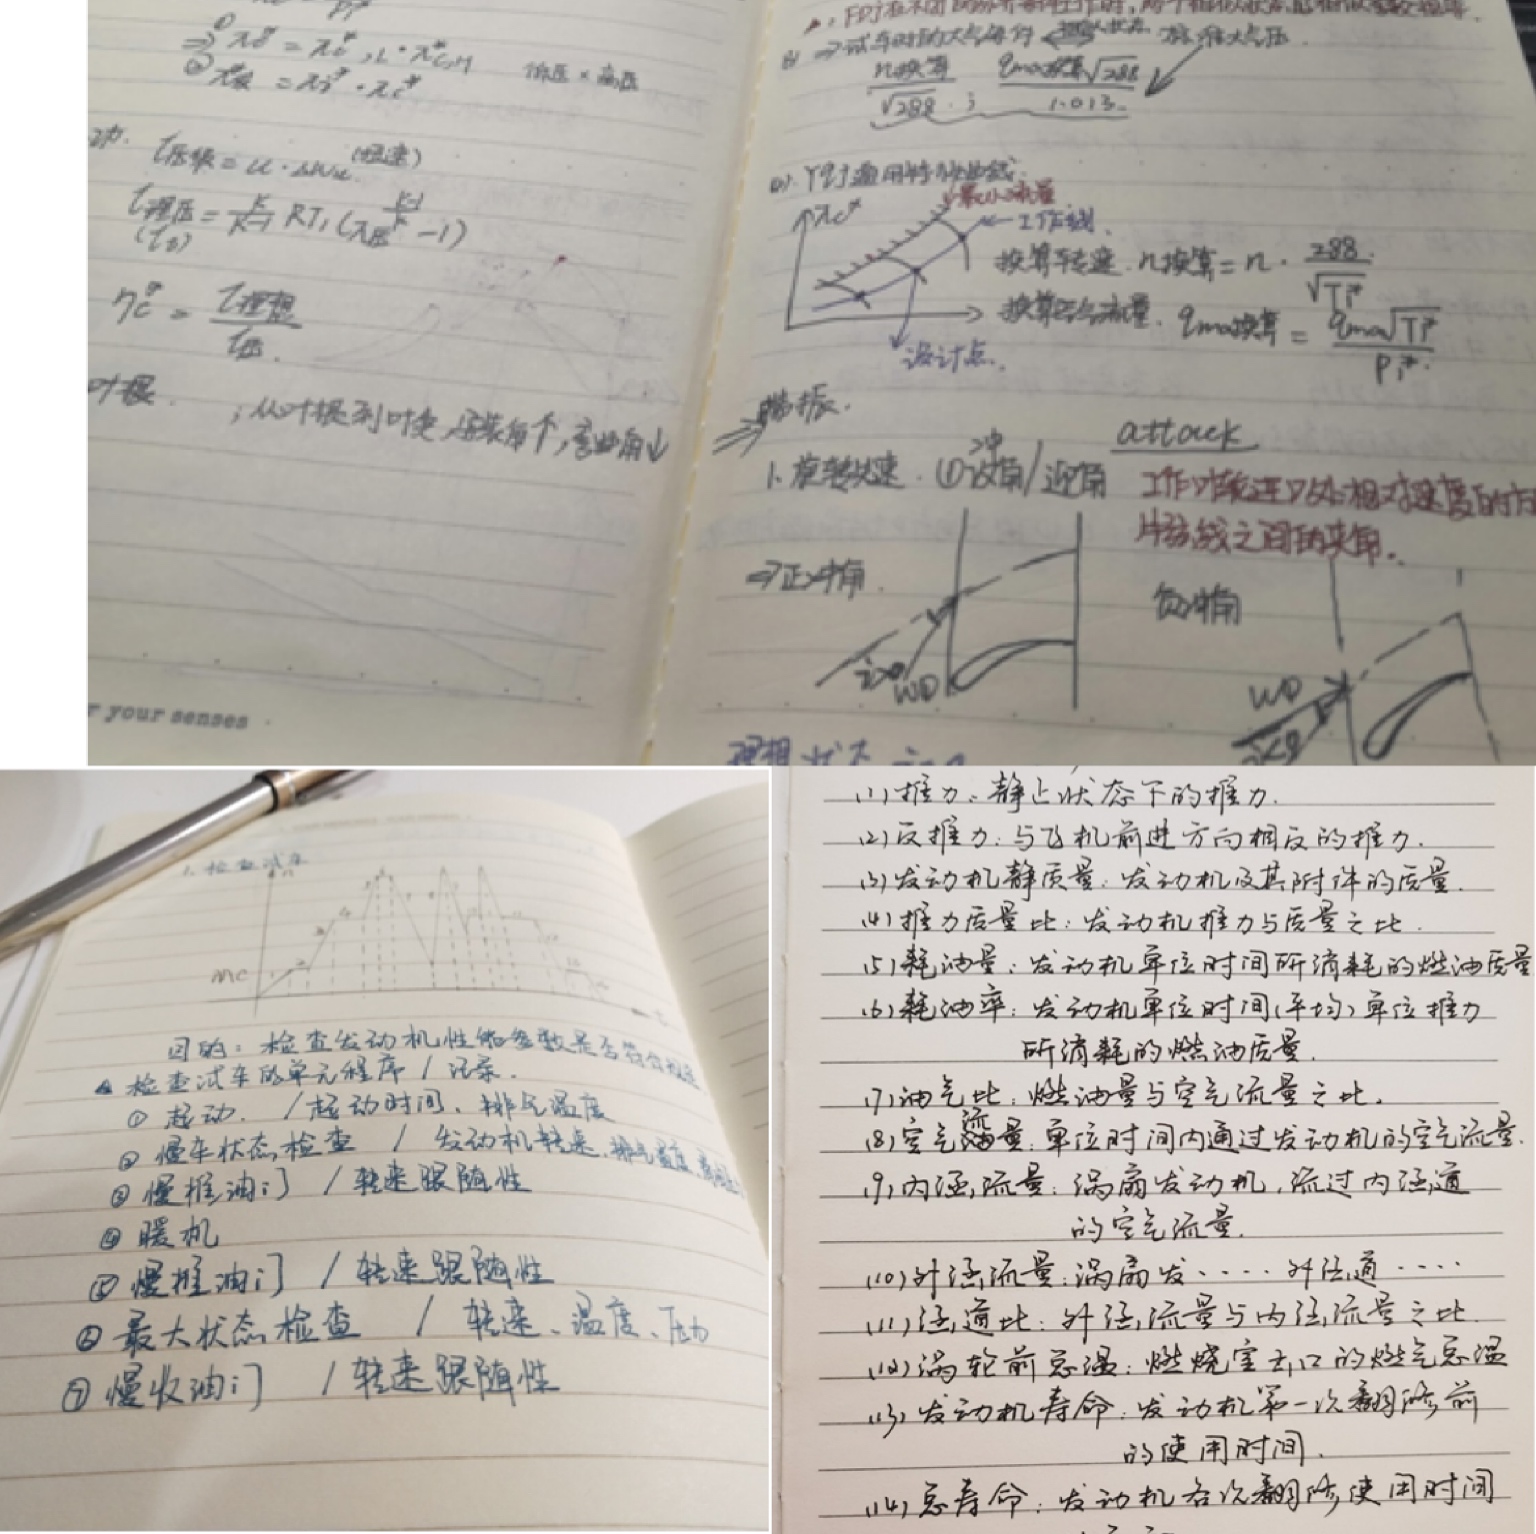 ① πc* = πc*,L · πc*,H 低压 × 高压
② π发 = πi* · πc*
功.
L压缩 = u · ΔWu
L理压 = k/(k-1) RT₁ (π压^((k-1)/k) - 1)
ηc* = L理想/L压.
叶根. ; 从叶根到叶尖, 安装角个, 弯曲角↓
r your senses
⇒ 试车时的大气条件 标准大气压.
n换算/√288 ; qma换算√288/1.013
YQJ通用特性曲线.
πc*
最小流量
工作线.
换算转速. n换算 = n · 288/√T₁*
换算空气流量. qma换算 = qma√T₁*/P₁*.
设计点.
⇒ 喘振.
attack
1. 旋转失速. ① 冲攻角/迎角
工作叶轮进口处相对速度的方
片弦线之间的夹角.
⇒正冲角. 负冲角
i>0 W
W i<0
理想状态
1. 检查试车
n
MC
目的: 检查发动机性能参数是否符合规定
检查试车的单元程序 / 记录.
① 起动. / 起动时间、排气温度
② 慢车状态检查 / 发动机转速、排气温度、
③ 慢推油门 / 转速跟随性
④ 暖机
⑤ 慢推油门 / 转速跟随性
⑥ 最大状态检查 / 转速、温度、压力
⑦ 慢收油门 / 转速跟随性
(1) 推力: 静止状态下的推力.
(2) 反推力: 与飞机前进方向相反的推力.
(3) 发动机静质量: 发动机及其附件的质量.
(4) 推力质量比: 发动机推力与质量之比.
(5) 耗油量: 发动机单位时间所消耗的燃油质量
(6) 耗油率: 发动机单位时间(平均)单位推力
所消耗的燃油质量.
(7) 油气比: 燃油量与空气流量之比.
(8) 空气流量: 单位时间内通过发动机的空气流量.
(9) 内涵流量: 涡扇发动机, 流过内涵道
的空气流量.
(10) 外涵流量: 涡扇发···· 外涵道····
(11) 涵道比: 外涵流量与内涵流量之比.
(12) 涡轮前总温: 燃烧室出口的燃气总温
(13) 发动机寿命: 发动机第一次翻修前
的使用时间.
(14) 总寿命: 发动机各次翻修使用时间